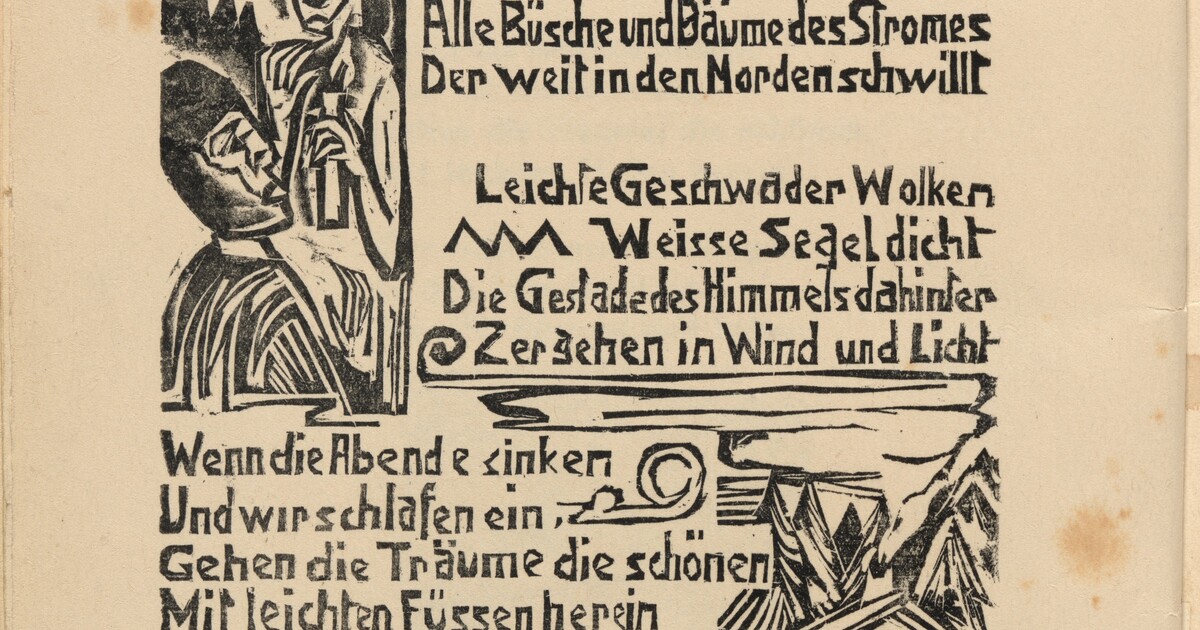 Alle Büsche und Bäume des Stromes
Der weit in den Norden schwillt
Leichte Geschwader Wolken
Weisse Segel dicht
Die Gestade des Himmels dahinter
Zergehen in Wind und Licht
Wenn die Abende sinken
Und wir schlafen ein,
Gehen die Träume die schönen
Mit leichten Füssen herein